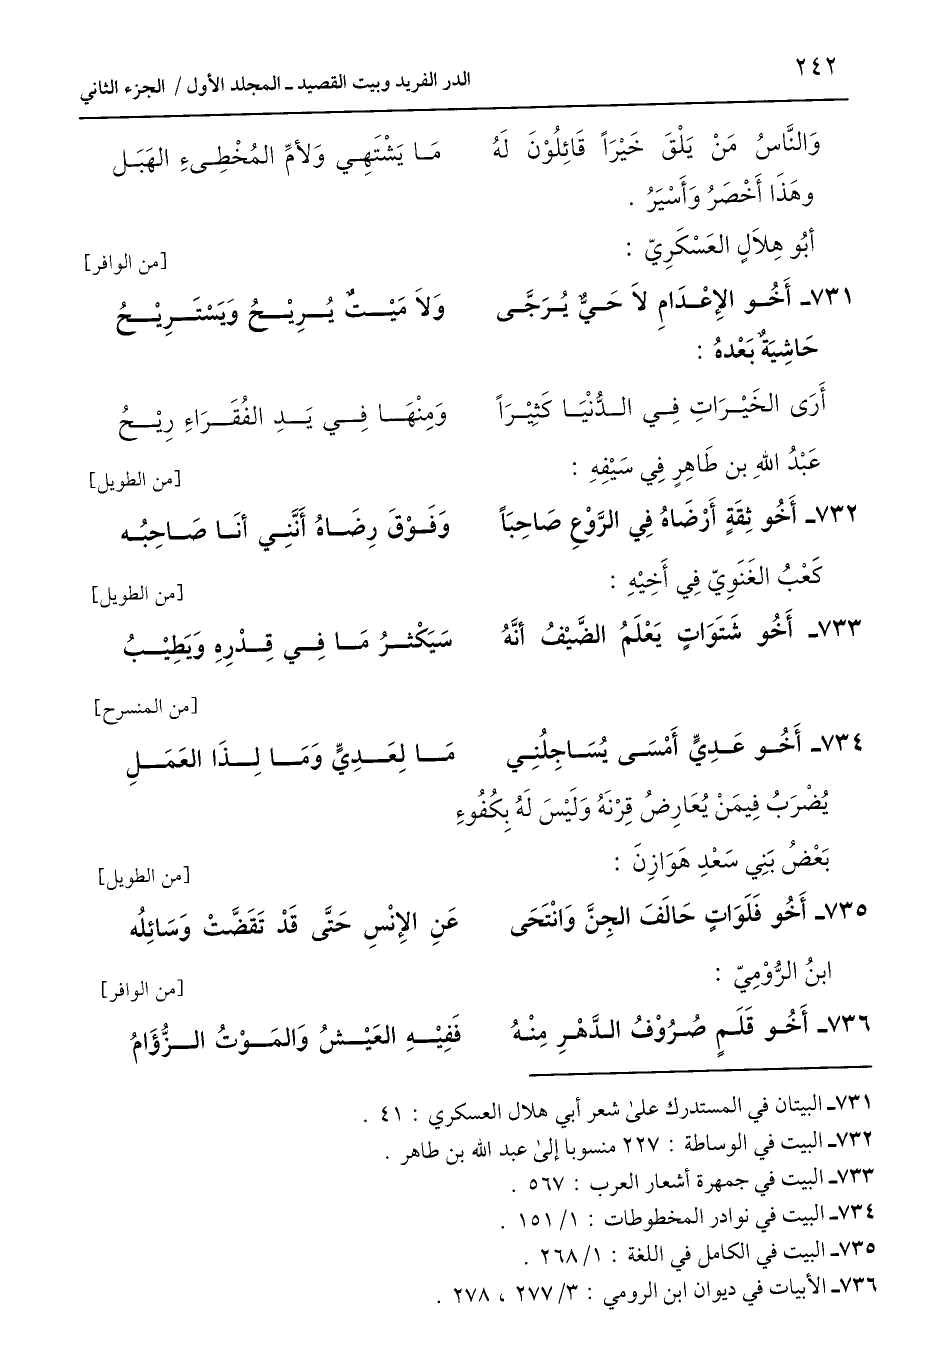 ٢٤٢
الدر الفريد وبيت القصيد ـ المجلد الأول / الجزء الثاني
وَالنَّاسُ مَنْ يَلْقَ خَيْرَاً قَائِلُوْنَ لَهُ مَا يَشْتَهِي وَلأمِّ المُخْطِىءِ الهَبَل
وهَذَا أَخْصَرُ وَأَسْيَرُ .
أَبُو هِلاَلٍ العَسْكَرِيّ :
[من الوافر]
٧٣١ـ أَخُو الإِعْدَامِ لاَ حَيٌّ يُرَجَّى وَلاَ مَيْتٌ يُرِيْحُ وَيَسْتَرِيْحُ
حَاشِيَةٌ بَعْدهُ :
أَرَى الخَيْرَاتِ فِي الدُّنْيَا كَثِيْرَاً وَمِنْهَا فِي يَدِ الفُقَرَاءِ رِيْحُ
عَبْدُ اللهِ بن طَاهِرٍ فِي سَيْفِهِ :
[من الطويل]
٧٣٢ـ أَخُو ثِقَةٍ أَرْضَاهُ فِي الرَّوْعِ صَاحِبَاً وَفَوْقَ رِضَاهُ أَنَّنِي أَنَا صَاحِبُه
كَعْبُ الغَنَوِيّ فِي أَخِيْهِ :
[من الطويل]
٧٣٣ـ أَخُو شَتَوَاتٍ يَعْلَمُ الضَّيْفُ أنَّهُ سَيَكْثرُ مَا فِي قِدْرِهِ وَيَطِيْبُ
[من المنسرح]
٧٣٤ـ أَخُو عَدِيٍّ أَمْسَى يُسَاجِلُنِي مَا لِعَدِيٍّ وَمَا لِذَا العَمَلِ
يُضْرَبُ فِيمَنْ يُعَارِضُ قِرْنَهُ وَلَيْسَ لَهُ بِكُفُوءٍ
بَعْضُ بَنِي سَعْدِ هَوَازِنَ :
[من الطويل]
٧٣٥ـ أَخُو فَلَوَاتٍ حَالَفَ الجِنَّ وَانْتَحَى عَنِ الإِنْسِ حَتَّى قَدْ تَقَضَّتْ وَسَائِلُه
ابنُ الرُّوْمِيّ :
[من الوافر]
٧٣٦ـ أَخُو قَلَمٍ صُرُوْفُ الدَّهْرِ مِنْهُ فَفِيْهِ العَيْشُ وَالمَوْتُ الزُّؤَامُ
٧٣١ـ البيتان في المستدرك علىٰ شعر أبي هلال العسكري : ٤١ .
٧٣٢ـ البيت في الوساطة : ٢٢٧ منسوبا إلىٰ عبد الله بن طاهر .
٧٣٣ـ البيت في جمهرة أشعار العرب : ٥٦٧ .
٧٣٤ـ البيت في نوادر المخطوطات : ١/ ١٥١ .
٧٣٥ـ البيت في الكامل في اللغة : ١/ ٢٦٨ .
٧٣٦ـ الأبيات في ديوان ابن الرومي : ٣/ ٢٧٧ ، ٢٧٨ .